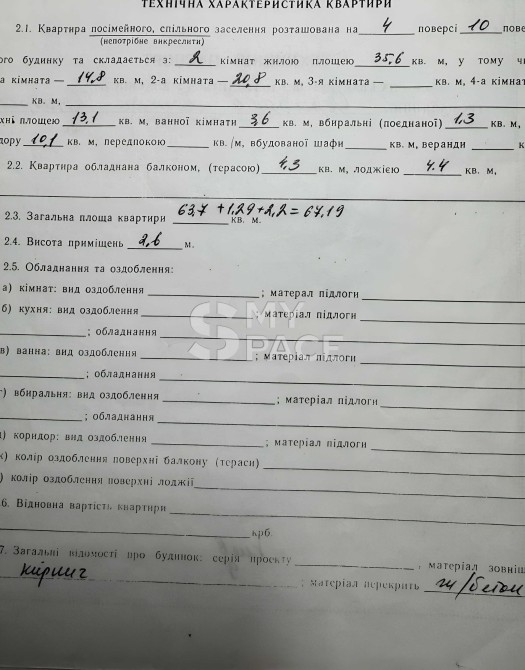 ТЕХНІЧНА ХАРАКТЕРИСТИКА КВАРТИРИ
2.1. Квартира посімейного, спільного заселення розташована на 4 поверсі 10 пове
(непотрібне викреслити)
ого будинку та складається з: 2 кімнат жилою площею 35,6 кв. м, у тому чи
а кімната — 14,8 кв. м, 2-а кімната — 20,8 кв. м, 3-я кімната — кв. м, 4-а кімнат
кв. м,
хні площею 13,1 кв. м, ванної кімнати 3,6 кв. м, вбиральні (поєднаної) 1,3 кв. м,
дору 10,1 кв. м, передпокою кв. м, вбудованої шафи кв. м, веранди к
2.2. Квартира обладнана балконом, (терасою) 4.3 кв. м, лоджією 4.4 кв. м,
2.3. Загальна площа квартири 63,7 + 1,29 + 2,2 = 67,19 кв. м.
2.4. Висота приміщень 2,6 м.
2.5. Обладнання та оздоблення:
а) кімнат: вид оздоблення ; матерал підлоги
б) кухня: вид оздоблення ; матеріал підлоги
; обладнання
MY SPACE
в) ванна: вид оздоблення ; матеріал підлоги
; обладнання
г) вбиральня: вид оздоблення ; матеріал підлоги
; обладнання
) коридор: вид оздоблення ; матеріал підлоги
) колір оздоблення поверхні балкону (тераси)
) колір оздоблення поверхні лоджії
6. Відновна вартість квартири
крб.
7. Загальні відомості про будинок: серія проекту , матеріал зовніш
кирпич ; матеріал перекрить ж/бетон